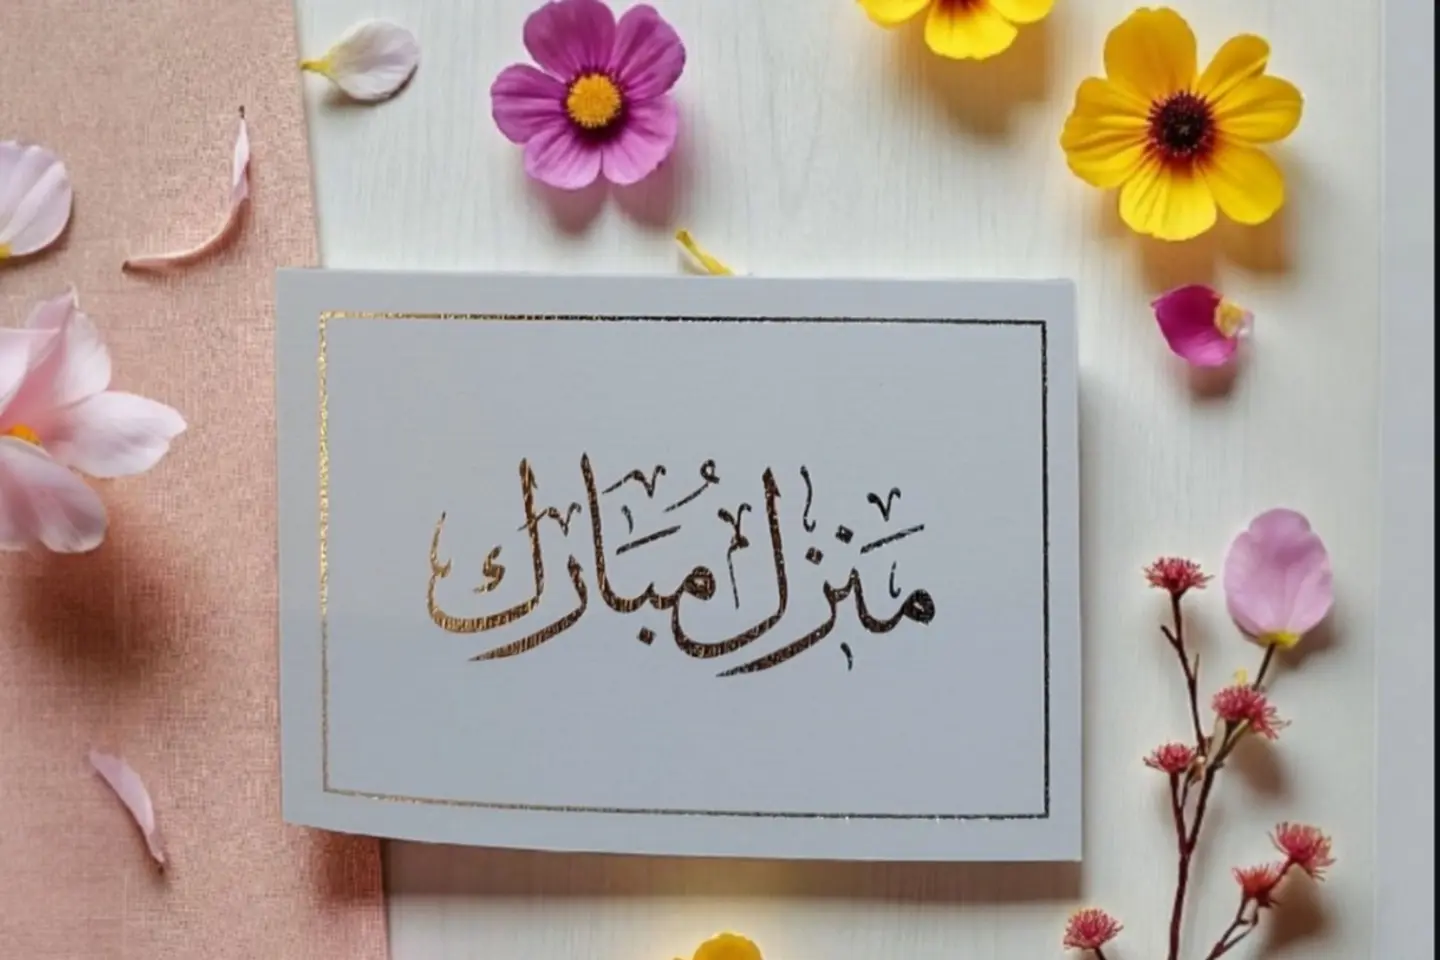 مَنزل مُبَارك